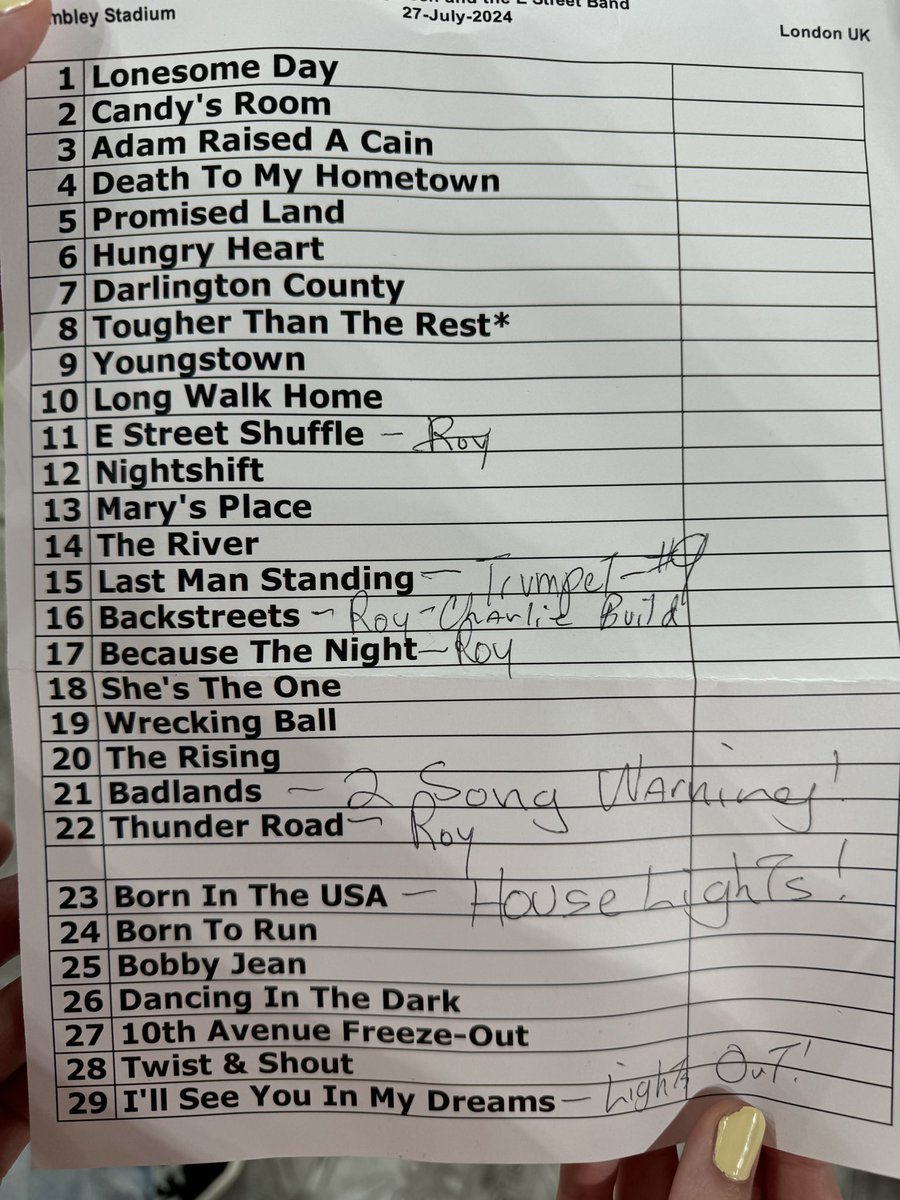 and the E Street Band
mbley Stadium
27-July-2024
London UK
1 Lonesome Day
2 Candy's Room
3 Adam Raised A Cain
4 Death To My Hometown
5 Promised Land
6 Hungry Heart
7 Darlington County
8 Tougher Than The Rest*
9 Youngstown
10 Long Walk Home
11 E Street Shuffle – Roy
12 Nightshift
13 Mary's Place
14 The River
15 Last Man Standing – Trumpet – #9
16 Backstreets – Roy – Charlie Build
17 Because The Night – Roy
18 She's The One
19 Wrecking Ball
20 The Rising
21 Badlands – 2 Song Warning!
22 Thunder Road – Roy
23 Born In The USA – House Lights!
24 Born To Run
25 Bobby Jean
26 Dancing In The Dark
27 10th Avenue Freeze-Out
28 Twist & Shout
29 I'll See You In My Dreams – Lights Out!